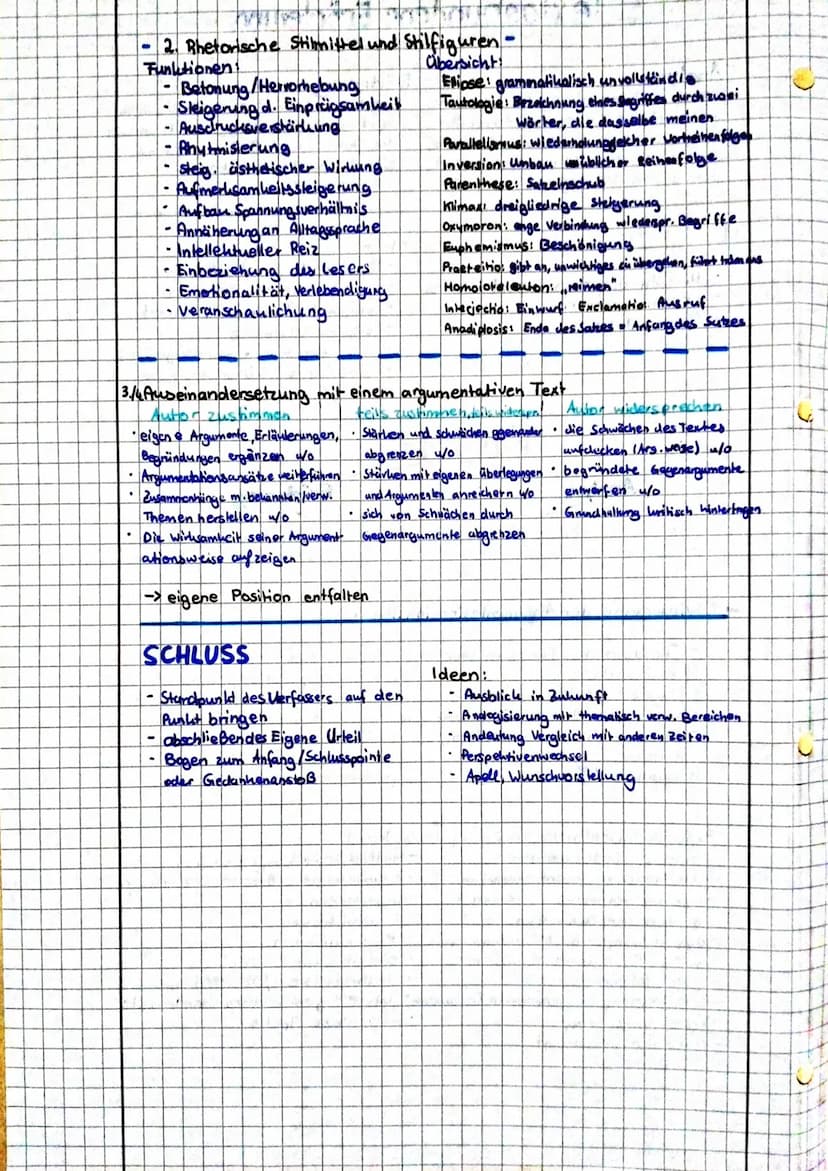 - 2. Rhetorische Stilmittel und Stilfiguren -
Funktionen:
- Betonung/Hervorhebung
- Steigerung d. Einprägsamkeit
- Ausdrucksverstärkung
- Rhytmisierung
- Steig. ästhetischer Wirkung
- Aufmerksamkeitssteigerung
- Aufbau Spannungsverhältnis
- Annäherung an Alltagssprache
- Intellektueller Reiz
- Einbeziehung des Lesers
- Emotionalität, Verlebendigung
- Veranschaulichung
Übersicht:
Ellipse: grammatikalisch unvollständig
Tautologie: Bezeichnung eines Begriffes durch zwei
Wörter, die dasselbe meinen
Parallelismus: Wiederholung gleicher Wortreihenfolgen
Inversion: Umbau üblicher Reihenfolge
Parenthese: Satzeinschub
Klimax: dreigliedrige Steigerung
Oxymoron: enge Verbindung wiederspr. Begriffe
Euphemismus: Beschönigung
Praeteritio: gibt an, unwichtiges zu übergehen, führt
Homoioteleuton: „reimen"
Interjectio: Einwurf Exclamatio: Ausruf
Anadiplosis: Ende des Satzes = Anfang des Satzes
3./4. Auseinandersetzung mit einem argumentativen Text
Autor zustimmen
· eigene Argumente, Erläuterungen,
Begründungen ergänzen u/o
· Argumentationsansätze weiterführen
· Zusammenhänge m. bekannten/verw.
Themen herstellen u/o
· Die Wirksamkeit seiner Argument-
ationsweise aufzeigen
teils zustimmen, teils widerspr.
· Stärken und Schwächen ggeneinander
abgrenzen u/o
· Stärken mit eigenen Überlegungen
und Argumenten anreichern u/o
· sich von Schwächen durch
Gegenargumente abgrenzen
Autor widersprechen
· die Schwächen des Textes
aufdecken (Arg.weise) u/o
· begründete Gegenargumente
entwerfen u/o
· Grundhaltung kritisch hinterfragen
→ eigene Position entfalten
SCHLUSS
- Standpunkt des Verfassers auf den
Punkt bringen
- abschließendes Eigene Urteil
- Bogen zum Anfang/Schlusspointe
oder Gedankenanstoß
Ideen:
- Ausblick in Zukunft
- Analogisierung mit thematisch verw. Bereichen
- Andeutung Vergleich mit anderen Zeiten
- Perspektivenwechsel
- Apell, Wunschvorstellung